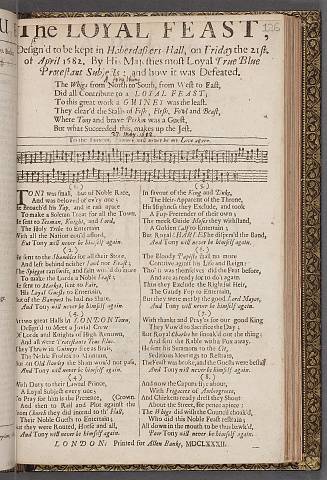 The LOYAL FEAST,
126
Design'd to be kept in Haberdashers-Hall, on Friday the 21st.
of April 1682. By His Majesties most Loyal True Blue
Protestant Subjects; and how it was Defeated.
The Whigs from North to South, from West to East,
Did all Contribute to a LOYAL FEAST;
To this great work a GUINEY was the least.
They clear'd the Stalls of Fish, Flesh, Fowl and Beast,
Where Tony and brave Perkin was a Guest,
But what Succeeded this, makes up the Jest.
never be my Love again.
(1.)
TONY was small, but of Noble Race,
And was beloved of ev'ry one;
He broach'd his Tap, and it ran apace
To make a Solemn Treat for all the Town.
He sent to Yeoman, Knight, and Lord,
The Holy Tribe to Entertain
With all the Nation cou'd afford,
But Tony will never be himself again.
(2.)
He sent to the Shambles for all their Store,
And left behind neither Lord nor Roast;
To make the Lords a Noble Feast;
He sent to Market, far and near,
His Loyal Guests to Entertain,
but of the Banquet he had no share,
And Tony will never be himself again.
(3.)
Two great Halls in LONDON Town,
Design'd to Meet a Jovial Crew
Of Lords and Knights of High Renown,
And all were Protestants True Blue.
The Nobles
And Tony will never be himself again.
(4.)
With Duty to their Lawful Prince,
A Loyal Subject every one;
To Pray for him in the Presence, (Crown.
And then to Rail and Plot against the
From Church they did intend to th' Hall,
Their Noble Guests to Entertain;
But they were Routed, Horse and all,
And Tony will never be himself again.
(5.)
In favour of the King and Duke,
The Heir-Apparent of the Throne,
His Highness they Exclude, and took
A Top-Pretender of their own;
The meek Guide Moses they withstand,
A Golden Calf to Entertain;
But Royal CHARLES he disperst the Band,
And Tony will never be himself again.
(6.)
The Bloody Papists shall no more
Contrive against his Life and Reign:
Tho' it was themselves did the Feat before,
And are as ready for to do't again.
Thus they Exclude the Right of Heir,
The Gaudy Fop to Entertain,
But they were met by the good Lord Mayor,
And Tony will never be himself again.
(7.)
With thanks and Pray'rs for our good King
They Vow'd to Sacrifice the Day;
But Royal Charles he smoak'd out the thing,
And sent the Rabble with a Pox away.
He sent his Sermons to the Cit,
Seditious Meetings to Restrain,
The Feast was broke, and the Guests were beshit
And Tony will never be himself again.
(8.)
And now the Capons fly about,
With Fricacees of Ambergreece,
And Chickens ready drest they Shout
About the Street, for pence apiece:
The Whigs did wish the Council choak'd,
Who did this Noble Feast restrain;
All down in the mouth to be thus bawk'd,
Poor Tony will never be himself again.
LONDON: Printed for Allen Banks, MDCLXXXII.